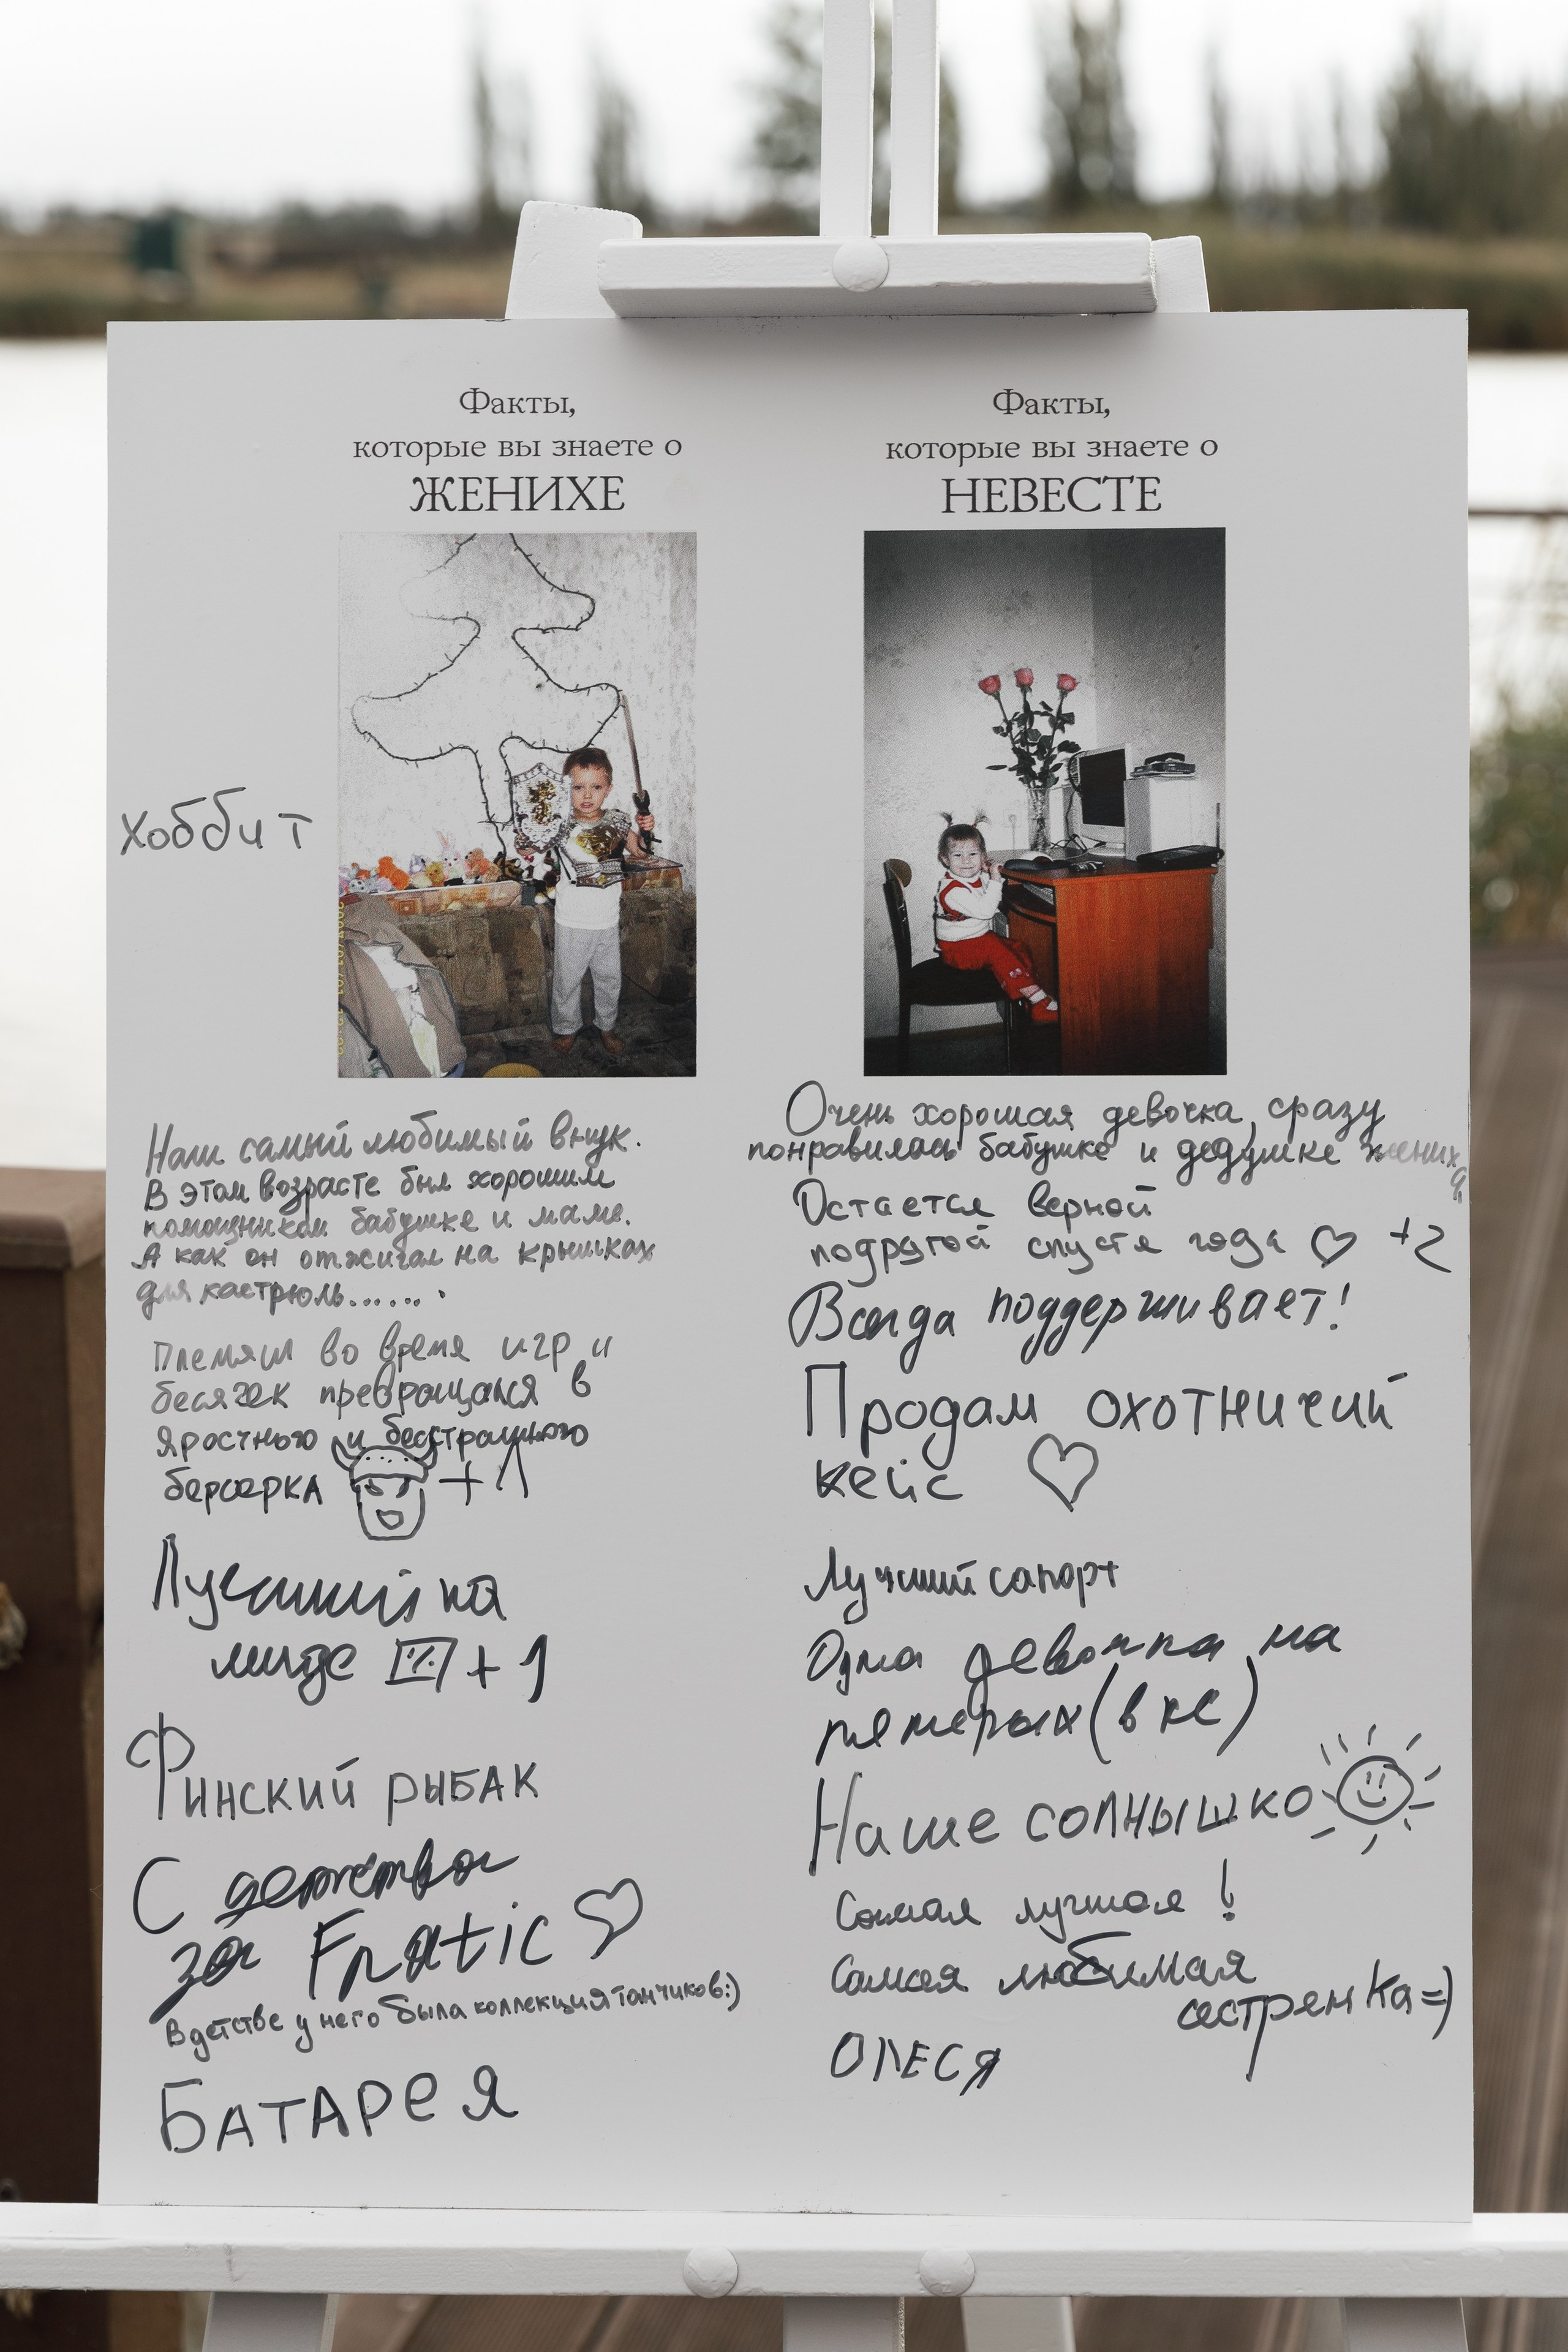 Факты,
которые вы знаете о
ЖЕНИХЕ
Хоббит
Наш самый любимый внук.
В этом возрасте был хорошим
помощником бабушке и маме.
А как он отжигал на крышках
для кастрюль.......
Племяш во время игр и
бесячек превращался в
яростного и бесстрашного
берсерка +1
Лучший на
миде +1
Финский рыбак
С детства
за Fnatic
В детстве у него была коллекция танчиков:)
БАТАРЕЯ
Факты,
которые вы знаете о
НЕВЕСТЕ
Очень хорошая девочка, сразу
понравилась бабушке и дедушке жениха.
Остается верной
подругой спустя года +2
Всегда поддерживает!
Продам охотничий
кейс
Лучший сапорт
Одна девочка на
пятерых (в кс)
Наше солнышко
Самая лучшая!
Самая любимая
сестренка=)
ОЛЕСЯ